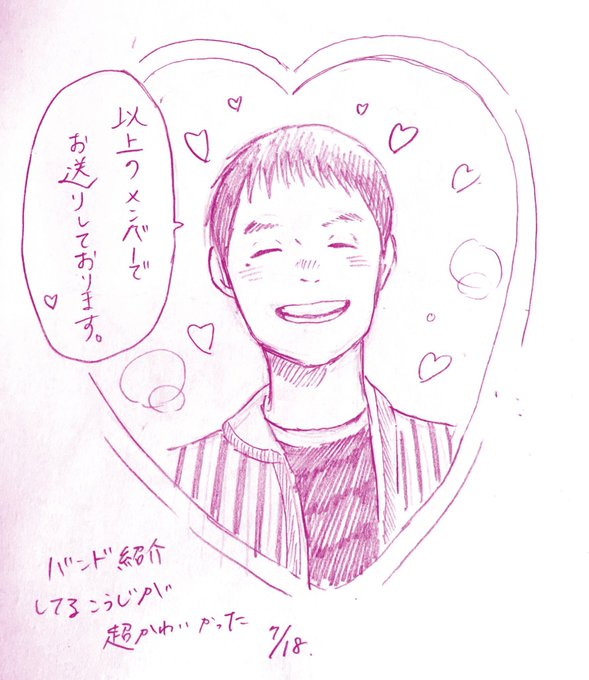 以上のメンバーで
お送りしております。
バンド紹介
してるこうじが
超かわいかった
7/18.